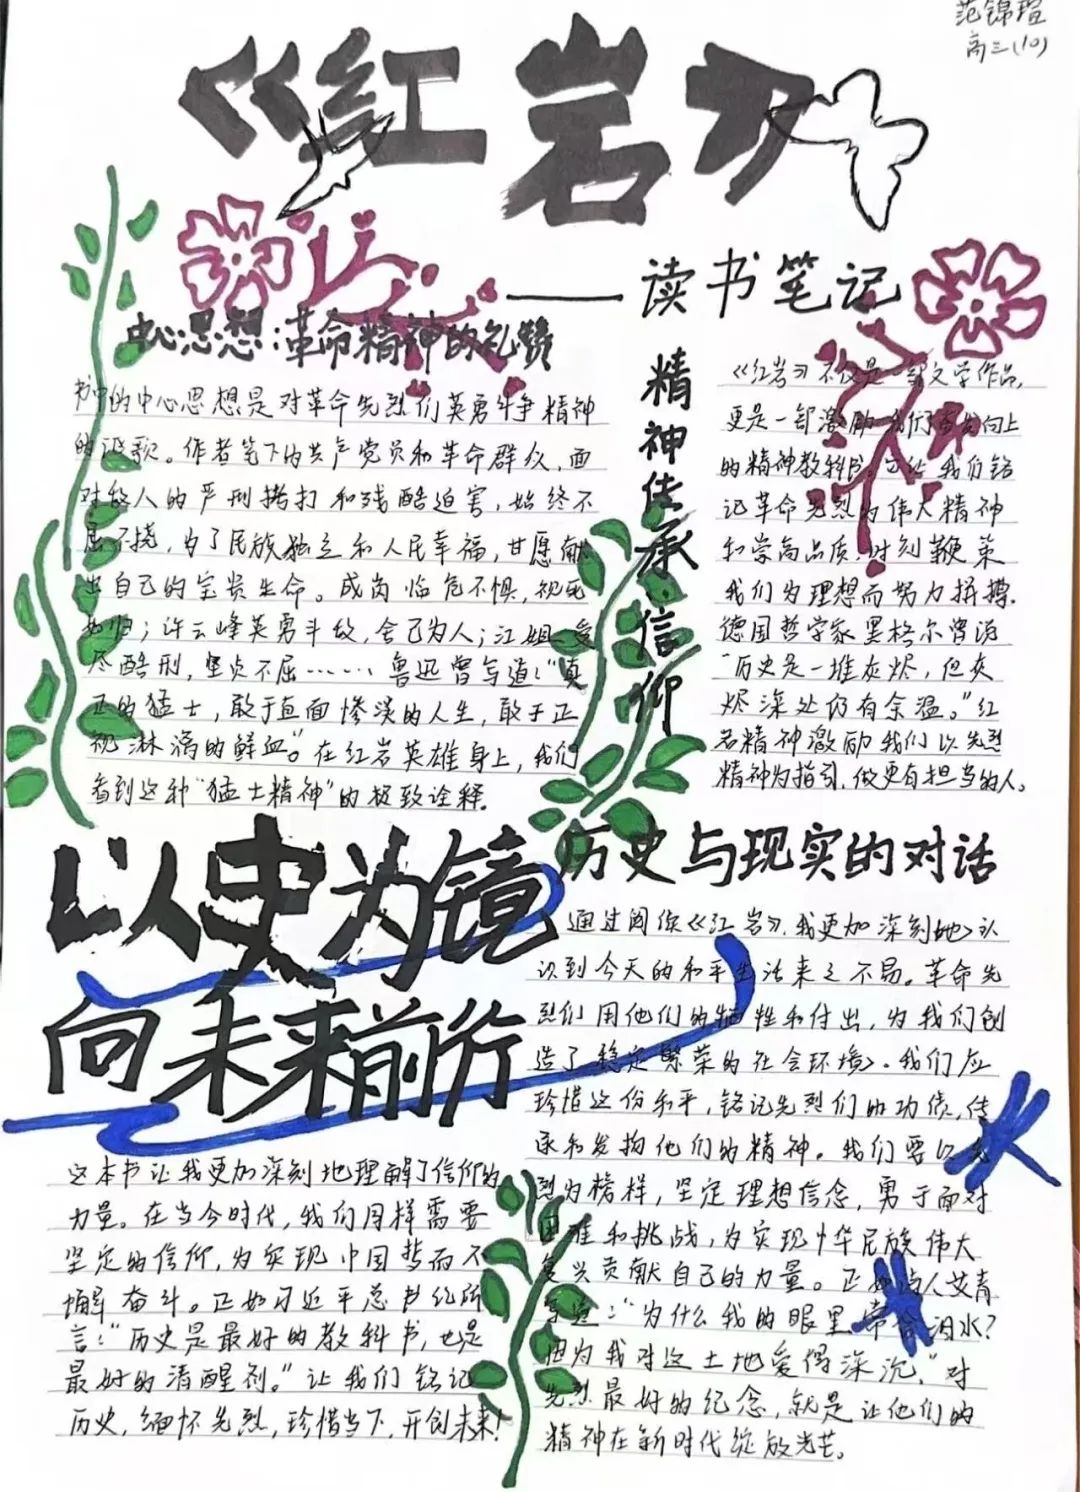 范锦瑄
高三(10)
《红岩》
——读书笔记
中心思想:革命精神的礼赞
书中的中心思想是对革命先烈们英勇斗争精神
的讴歌。作者笔下的共产党员和革命群众,面
对敌人的严刑拷打和残酷迫害,始终不
屈不挠,为了民族独立和人民幸福,甘愿献
出自己的宝贵生命。成岗临危不惧,视死
如归;许云峰英勇斗敌,舍己为人;江姐受
尽酷刑,坚贞不屈……鲁迅曾写道:“真
正的猛士,敢于直面惨淡的人生,敢于正
视淋漓的鲜血”。在红岩英雄身上,我们
看到这种“猛士精神”的极致诠释.
精神传承·信仰
《红岩》不仅是一部文学作品,
更是一部激励我们奋发向上
的精神教科书。它让我们铭
记革命先烈的伟大精神
和崇高品质,时刻鞭策
我们为理想而努力拼搏.
德国哲学家黑格尔曾说
“历史是一堆灰烬,但灰
烬深处仍有余温。”红
岩精神激励我们以先烈
精神为指引,做更有担当的人。
以史为镜
向未来前行
这本书让我更加深刻地理解了信仰的
力量。在当今时代,我们同样需要
坚定的信仰,为实现中国梦而不
懈奋斗。正如习近平总书记所
言:“历史是最好的教科书,也是
最好的清醒剂。”让我们铭记
历史,缅怀先烈,珍惜当下,开创未来!
历史与现实的对话
通过阅读《红岩》,我更加深刻地认
识到今天的和平生活来之不易。革命先
烈们用他们的牺牲和付出,为我们创
造了稳定繁荣的社会环境。我们应
珍惜这份和平,铭记先烈们的功绩,传
承和发扬他们的精神。我们要以先
烈为榜样,坚定理想信念,勇于面对
困难和挑战,为实现中华民族伟大
复兴贡献自己的力量。正如诗人艾青
写道:“为什么我的眼里常含泪水?
因为我对这土地爱得深沉”对
先烈最好的纪念,就是让他们的
精神在新时代绽放光芒。